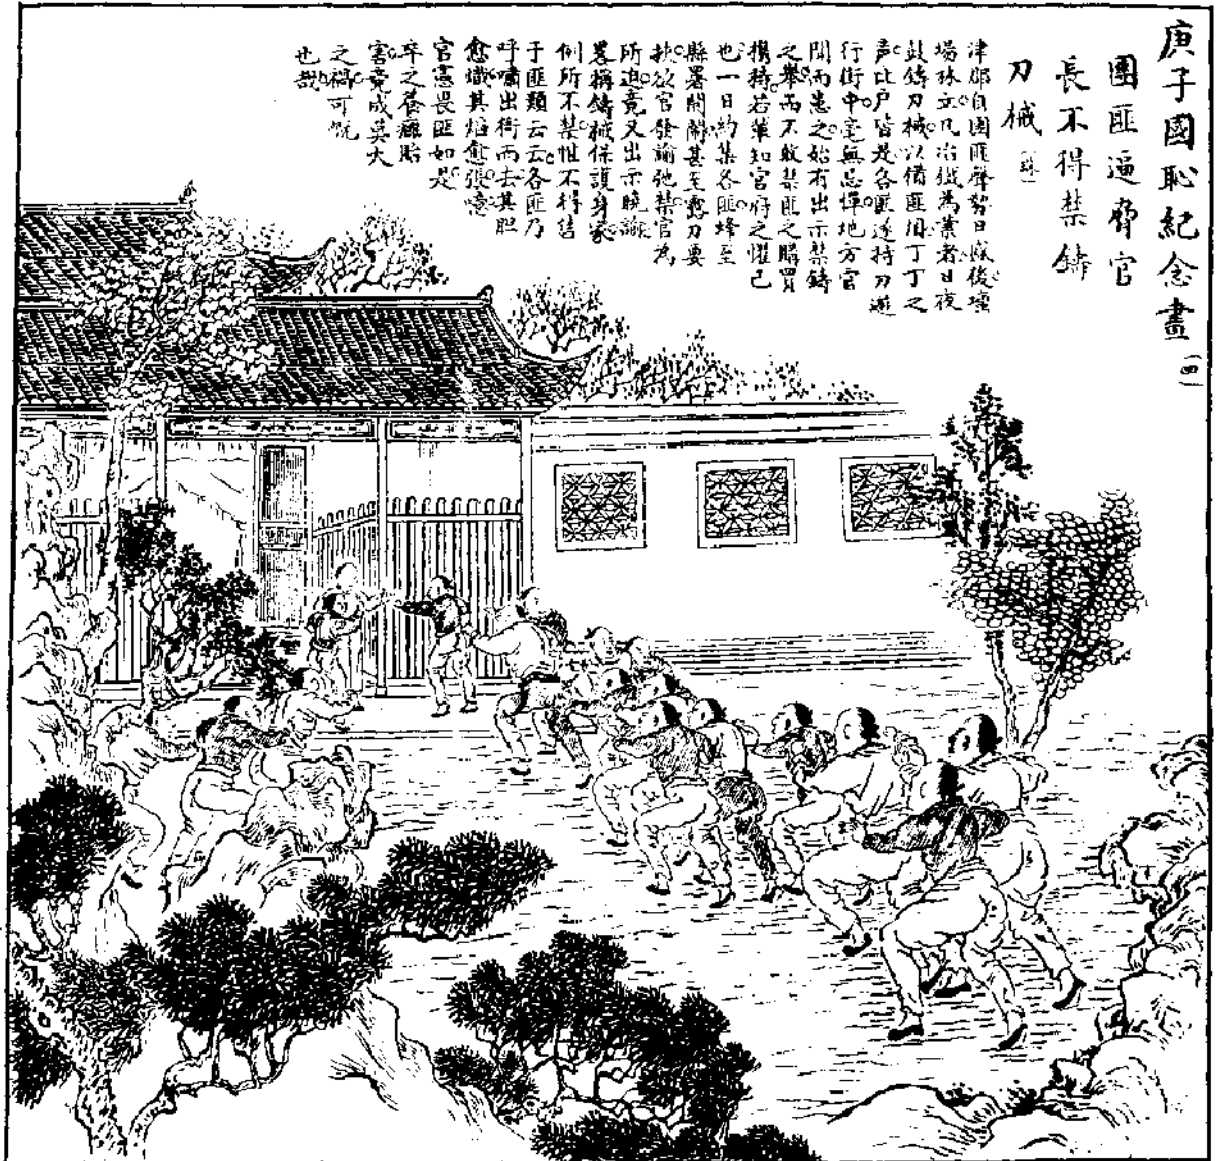 庚子國恥紀念畫 (四)
團匪逼脅官
長不得禁鑄
刀械
津郡自團匪聲勢日盛後壇
場林立凡冶鐵為業者日夜
鼓鑄刀械以備匪用丁丁之
声比戶皆是各匪遂持刀遊
行街中毫無忌憚地方官
聞而患之始有出示禁鑄
之舉而不敢禁匪之購買
携持若輩知官府之懼己
也一日約集各匪蜂至
縣署閙闹甚至露刃要
挾欲官發諭弛禁官為
所迫竟又出示曉諭
畧稱鑄械保護身家
例所不禁惟不得售
于匪類云云各匪乃
呼嘯出衙而去其胆
愈熾其焰愈張噫
官憲畏匪如是
卒之養癰貽
害竟成莫大
之禍可慨
也哉